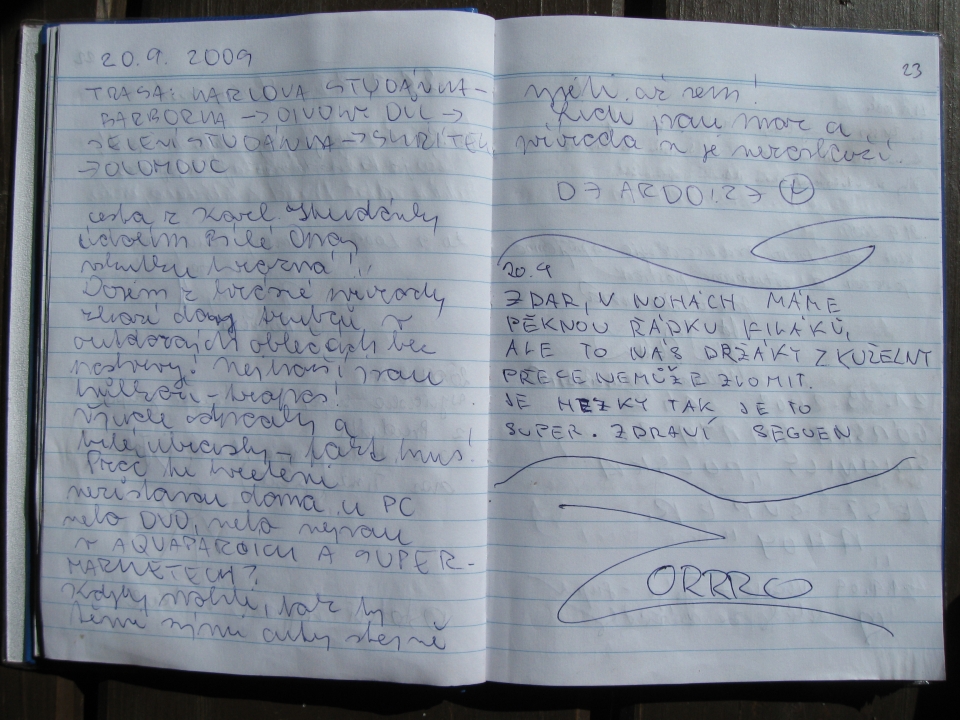 20.9. 2009
TRASA: KARLOVA STUDÁNKA -
BARBORKA -> DIVOKÝ DŮL ->
JELENÍ STUDÁNKA -> SKŘÍTEK
-> OLOMOUC
cesta z Karl. Studánky
údolím Bílé Opavy
krásná !!
Dojem z krásné přírody
kazí davy v
outdorových oblečcích bez
!
- hrozas!
Všude odpadky a
bílé ubrousky - fakt hnus!
Proč ti
nezůstanou doma u PC
nebo DVD, nebo nejsou
v AQUAPARCÍCH A SUPER-
MARKETECH?
Kdyby mohli, tak by
těmi svými auty stejně
23
vjeli až sem!
Lidi jsou a
příroda si je nezaslouží.
20.9
ZDAR, V NOHÁCH MÁME
PĚKNOU ŘÁDKU KILÁKŮ,
ALE TO NÁS DRŽÁKY Z KUŽELNY
PŘECE NEMŮŽE ZLOMIT.
JE HEZKY TAK JE TO
SUPER. ZDRAVÍ SEGUEN
ZORRRO